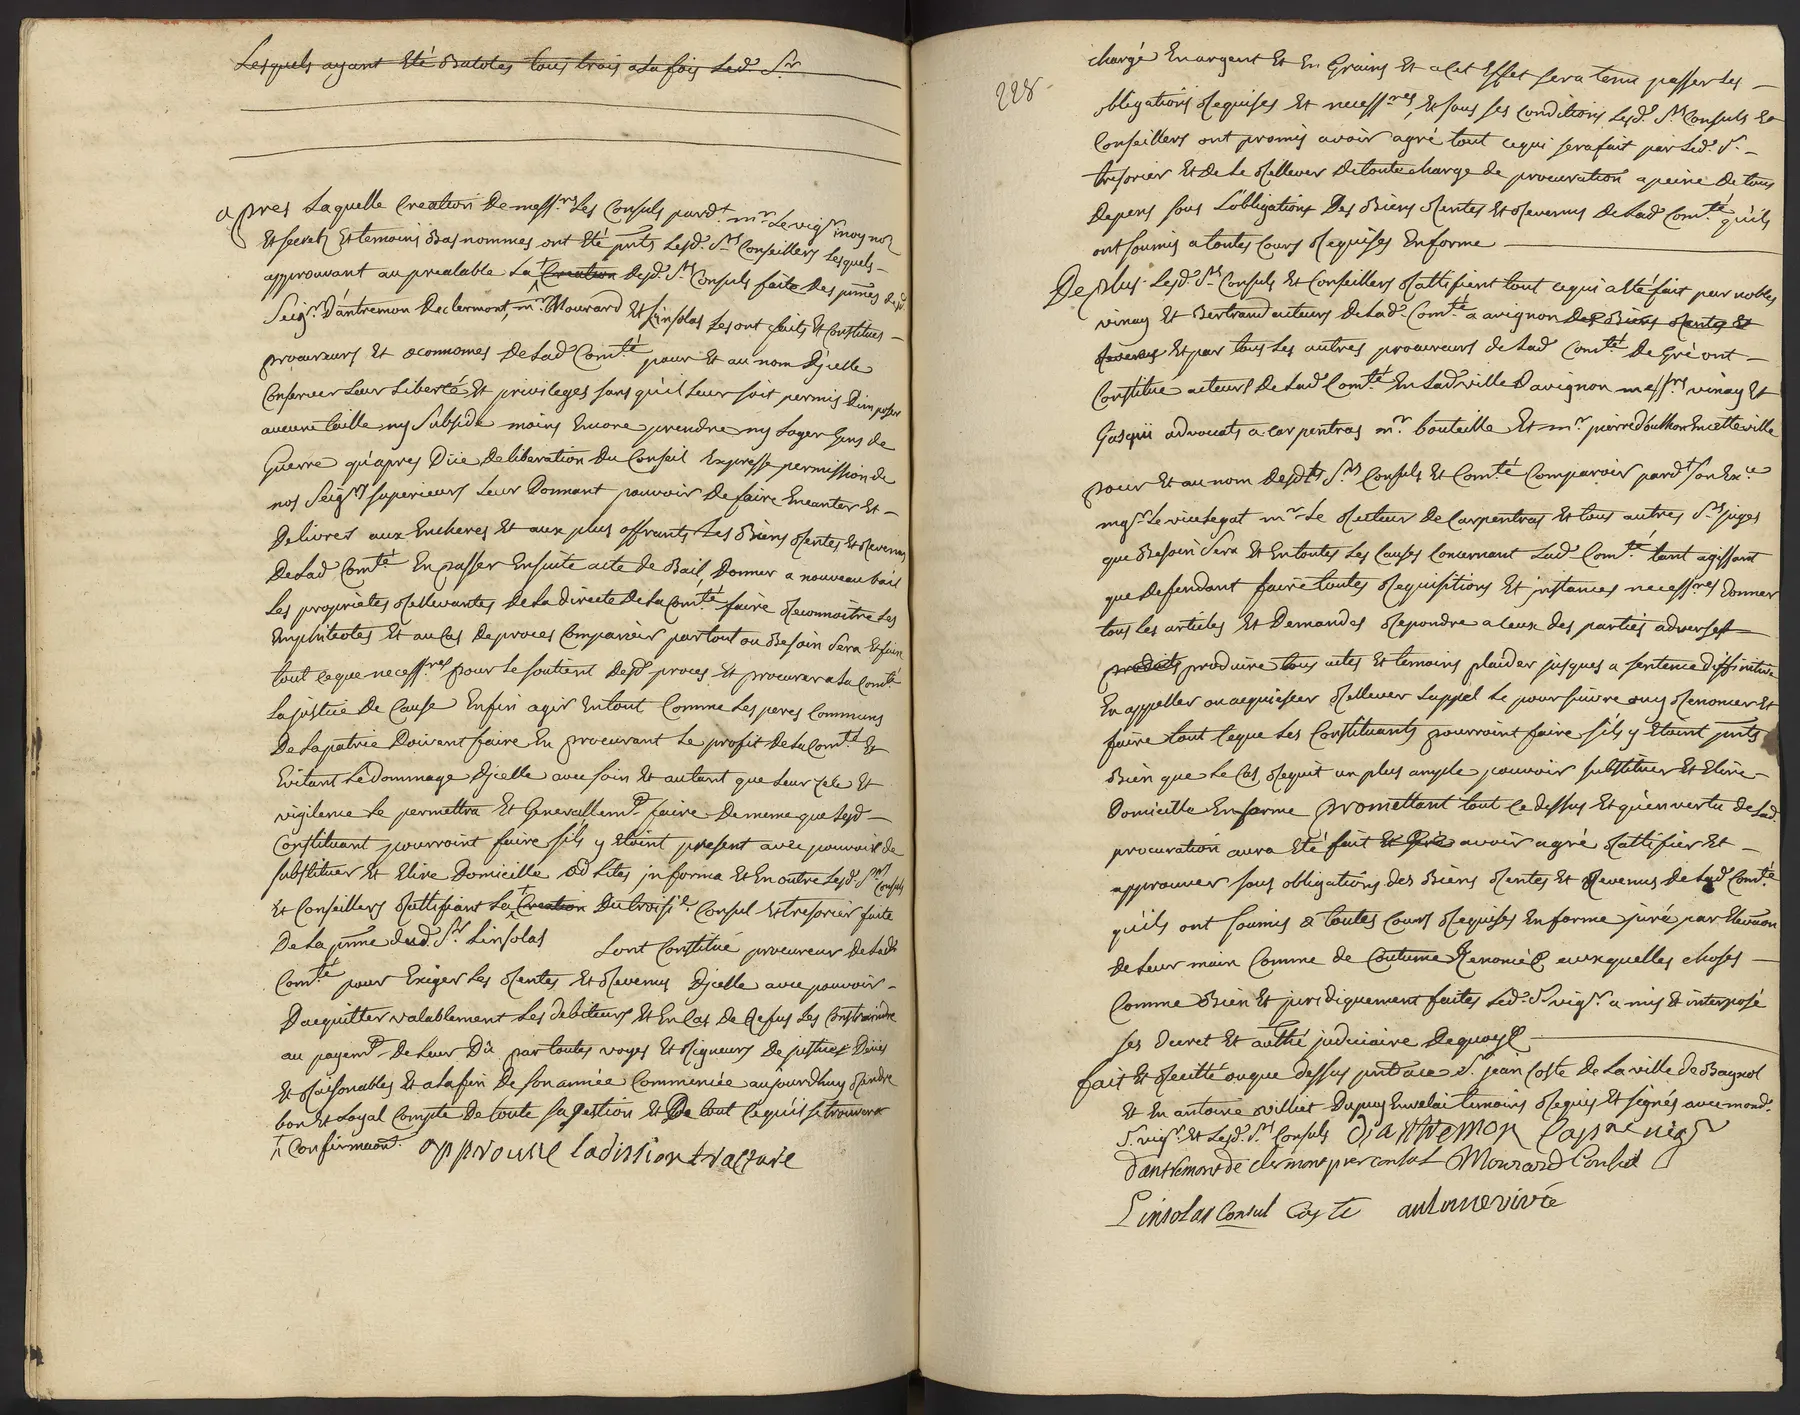 Lesquels ayant Eté Balotes tous trois a la fois Led. Sr
apres Laquelle Creation De messrs Les Consuls pardt mr Le vigr moy nore
Et secretre Et temoins Bas nommes ont Eté pnts Lesd. Srs Conseillers Lesquels
approuvant au prealable La Creation Desd. Srs Consuls faite Des pnnes desd.
Seigr. D'antremon De clermont, mr Mourard Et Linsolas Les ont faits Et Constitues
procureurs Et oeconomes De Lad Comté pour Et au nom D'icelle
Conserver Leur Liberté Et privileges sans qu'il Leur soit permis D'imposer
aucune taille ny subside moins Encore prendre ny Loger Gens de
Guerre qu'apres Düe Deliberation Du Conseil Expresse permission de
nos Seigrs superieurs Leur Donnant pouvoir De faire Encanter Et
Delivrer aux Encheres Et aux plus offrants Les Biens Rentes Et Revenus
De Lad Comté En passer Ensuite acte de Bail, Donner a nouveau bail
Les proprietes Rellevantes De La directe De La Comté faire Reconnoitre Les
Emphiteotes Et au Cas De proces Comparoir par tout ou Besoin sera Et faire
tout Ce que necessre pour Le soutient Desd proces Et procurer a La Comté
La justice De Cause Enfin agir En tout Comme Les peres Communs
De La patrie Doivent faire En procurant Le profit De La Comté Et
Evitant Le Dommage D'icelle avec soin Et autant que Leur zele Et
vigilence Le permettra Et Generallemt faire De meme que Lesd
Constituant pourroint faire s'ils y Etoint present avec pouvoir de
substituer Et Elire Domicille ad Lites in forma Et En outre Lesd. Srs Consuls
Et Conseillers Rattifiant La Creation Du troisie. Consul Et tresorier faite
De La pnne dud. Sr Linsolas Lont Constitué procureur De Lad
Comté pour Exiger Les Rentes Et Revenus D'icelle avec pouvoir
D'acquitter valablement Les debiteurs Et En Cas De Refus Les Constraindre
au payemt De Leur Dü par toutes voyes Et Rigueurs De justice Dües
Et Raisonables Et a La fin De son année Commencée aujourdhuy Rendre
bon Et Loyal Compte De toute sa Gestion Et De tout Ce qu'il se trouvera
Confirmaon. approuve ladission et rature
228
chargé En argent Et En Grains Et a Cet Effet sera tenu passer Les
obligations Requises Et necessres, Et sous ses Conditions Lesd. Srs Consuls Et
Conseillers ont promis avoir agré tout ce qui sera fait par Led. Sr
tresorier Et De Le Rellever De toute charge de procuration a peine De tous
Depens sous L'obligation Des Biens Rentes Et Revenus De Lad Comté qu'ils
ont soumis a toutes Cours Requises En forme
De plus Lesd. Srs Consuls Et Conseillers Rattifient tout ce qui a Eté fait par nobles
vinay Et Bertrand acteurs De Lad. Comté a avignon Des Biens Rentes Et
Revenus Et par tous Les autres procureurs de Lad Comté De Gré ont
Constitue acteurs De Lad Comté En Lad ville D'avignon messrs vinay Et
Gasqui advocats a Carpentras mr. bouteille Et mr pierre doulhon En cette ville
pour Et au nom Desdts Srs Consuls Et Comté Comparoir pardt son Exce
mgr Le vicelegat mr Le Recteur De Carpentras Et tous autres Srs juges
que Besoin sera Et En toutes Les Causes Concernant Lad Comté tant agissant
que Defendant faire toutes Requisitions Et instances necessres Donner
tous Les articles Et Demandes Repondre a Ceux des parties adverses
produits produire tous actes Et temoins plaider jusques a sentence Diffinitive
En appeller ou acquiesser Rellever Lappel Le poursuivre ou y Renoncer Et
faire tout Ce que Les Constituants pourroint faire s'ils y Etoint pnts
Bien que Le Cas Requit un plus ample pouvoir substituer Et Elire
Domicille En forme promettant tout Ce dessus Et qu'en vertu de Lad.
procuration aura Eté fait Et Gere avoir agré Rattifier Et
approuver sous obligations des Biens Rentes Et Revenus De Lad Comté
qu'ils ont soumis a toutes Cours Requises En forme juré par Elevaon
de Leur main Comme de Coutume Renoncé auxquelles choses
Comme Bien Et juridiquement faites Led. Sr vigr. a mis Et interposé
ses Decret Et authé judiciaire De quoy &
fait Et Recitté ou que dessus pnts a ce Sr. jean Coste de La ville de Bagnol
Et En antoine Villiet Dupuy Envelai temoins Requis Et signés avec mond.
Sr. vigr. Et Lesd. Srs Consuls Diantremon Cappne vigr
Dantremont de clermont pier consul Mourard Consul
Linsolas Consul Coste antoine vivie